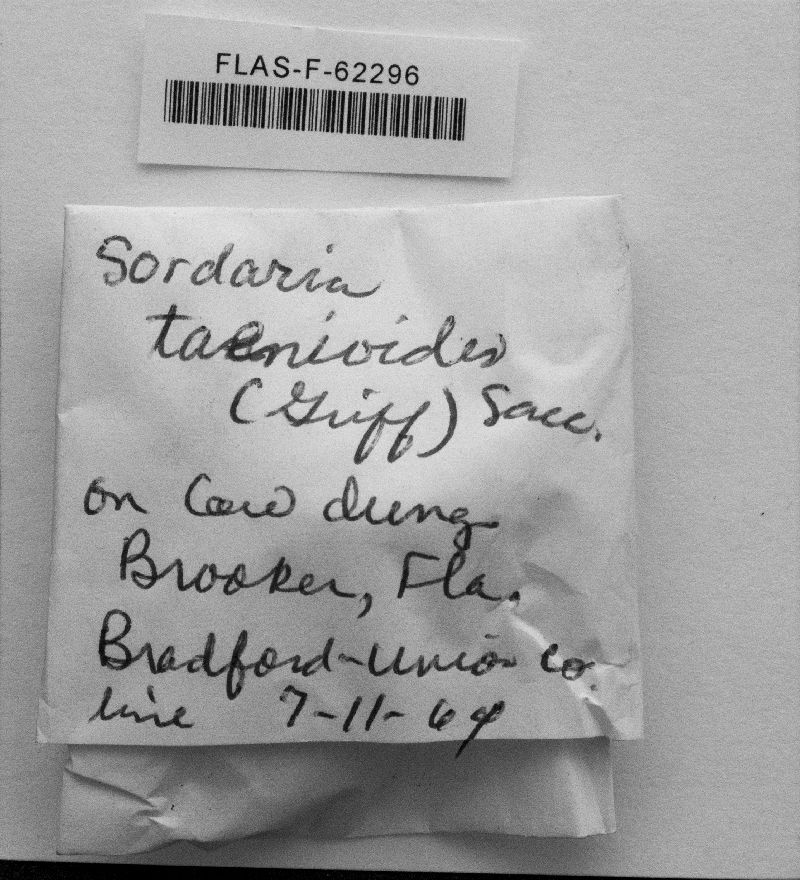 FLAS-F-62296
Sordaria
taenioides
(Griff) Sacc.
on Cow dung
Brooker, Fla.
Bradford-Union Co.
line 7-11-64